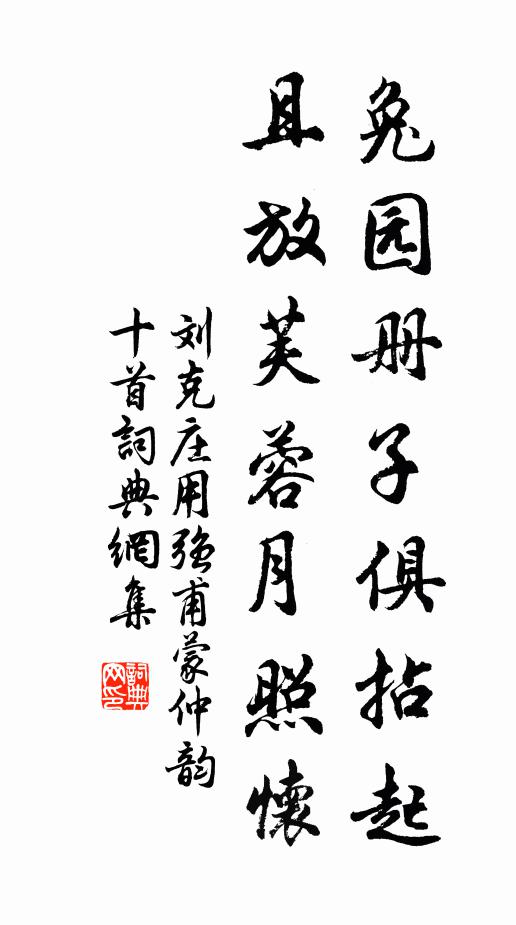 兔园册子俱拈起
且放芙蓉月照懷
刘克庄用强甫蒙仲韵
十首詞典網集
詞典
网印